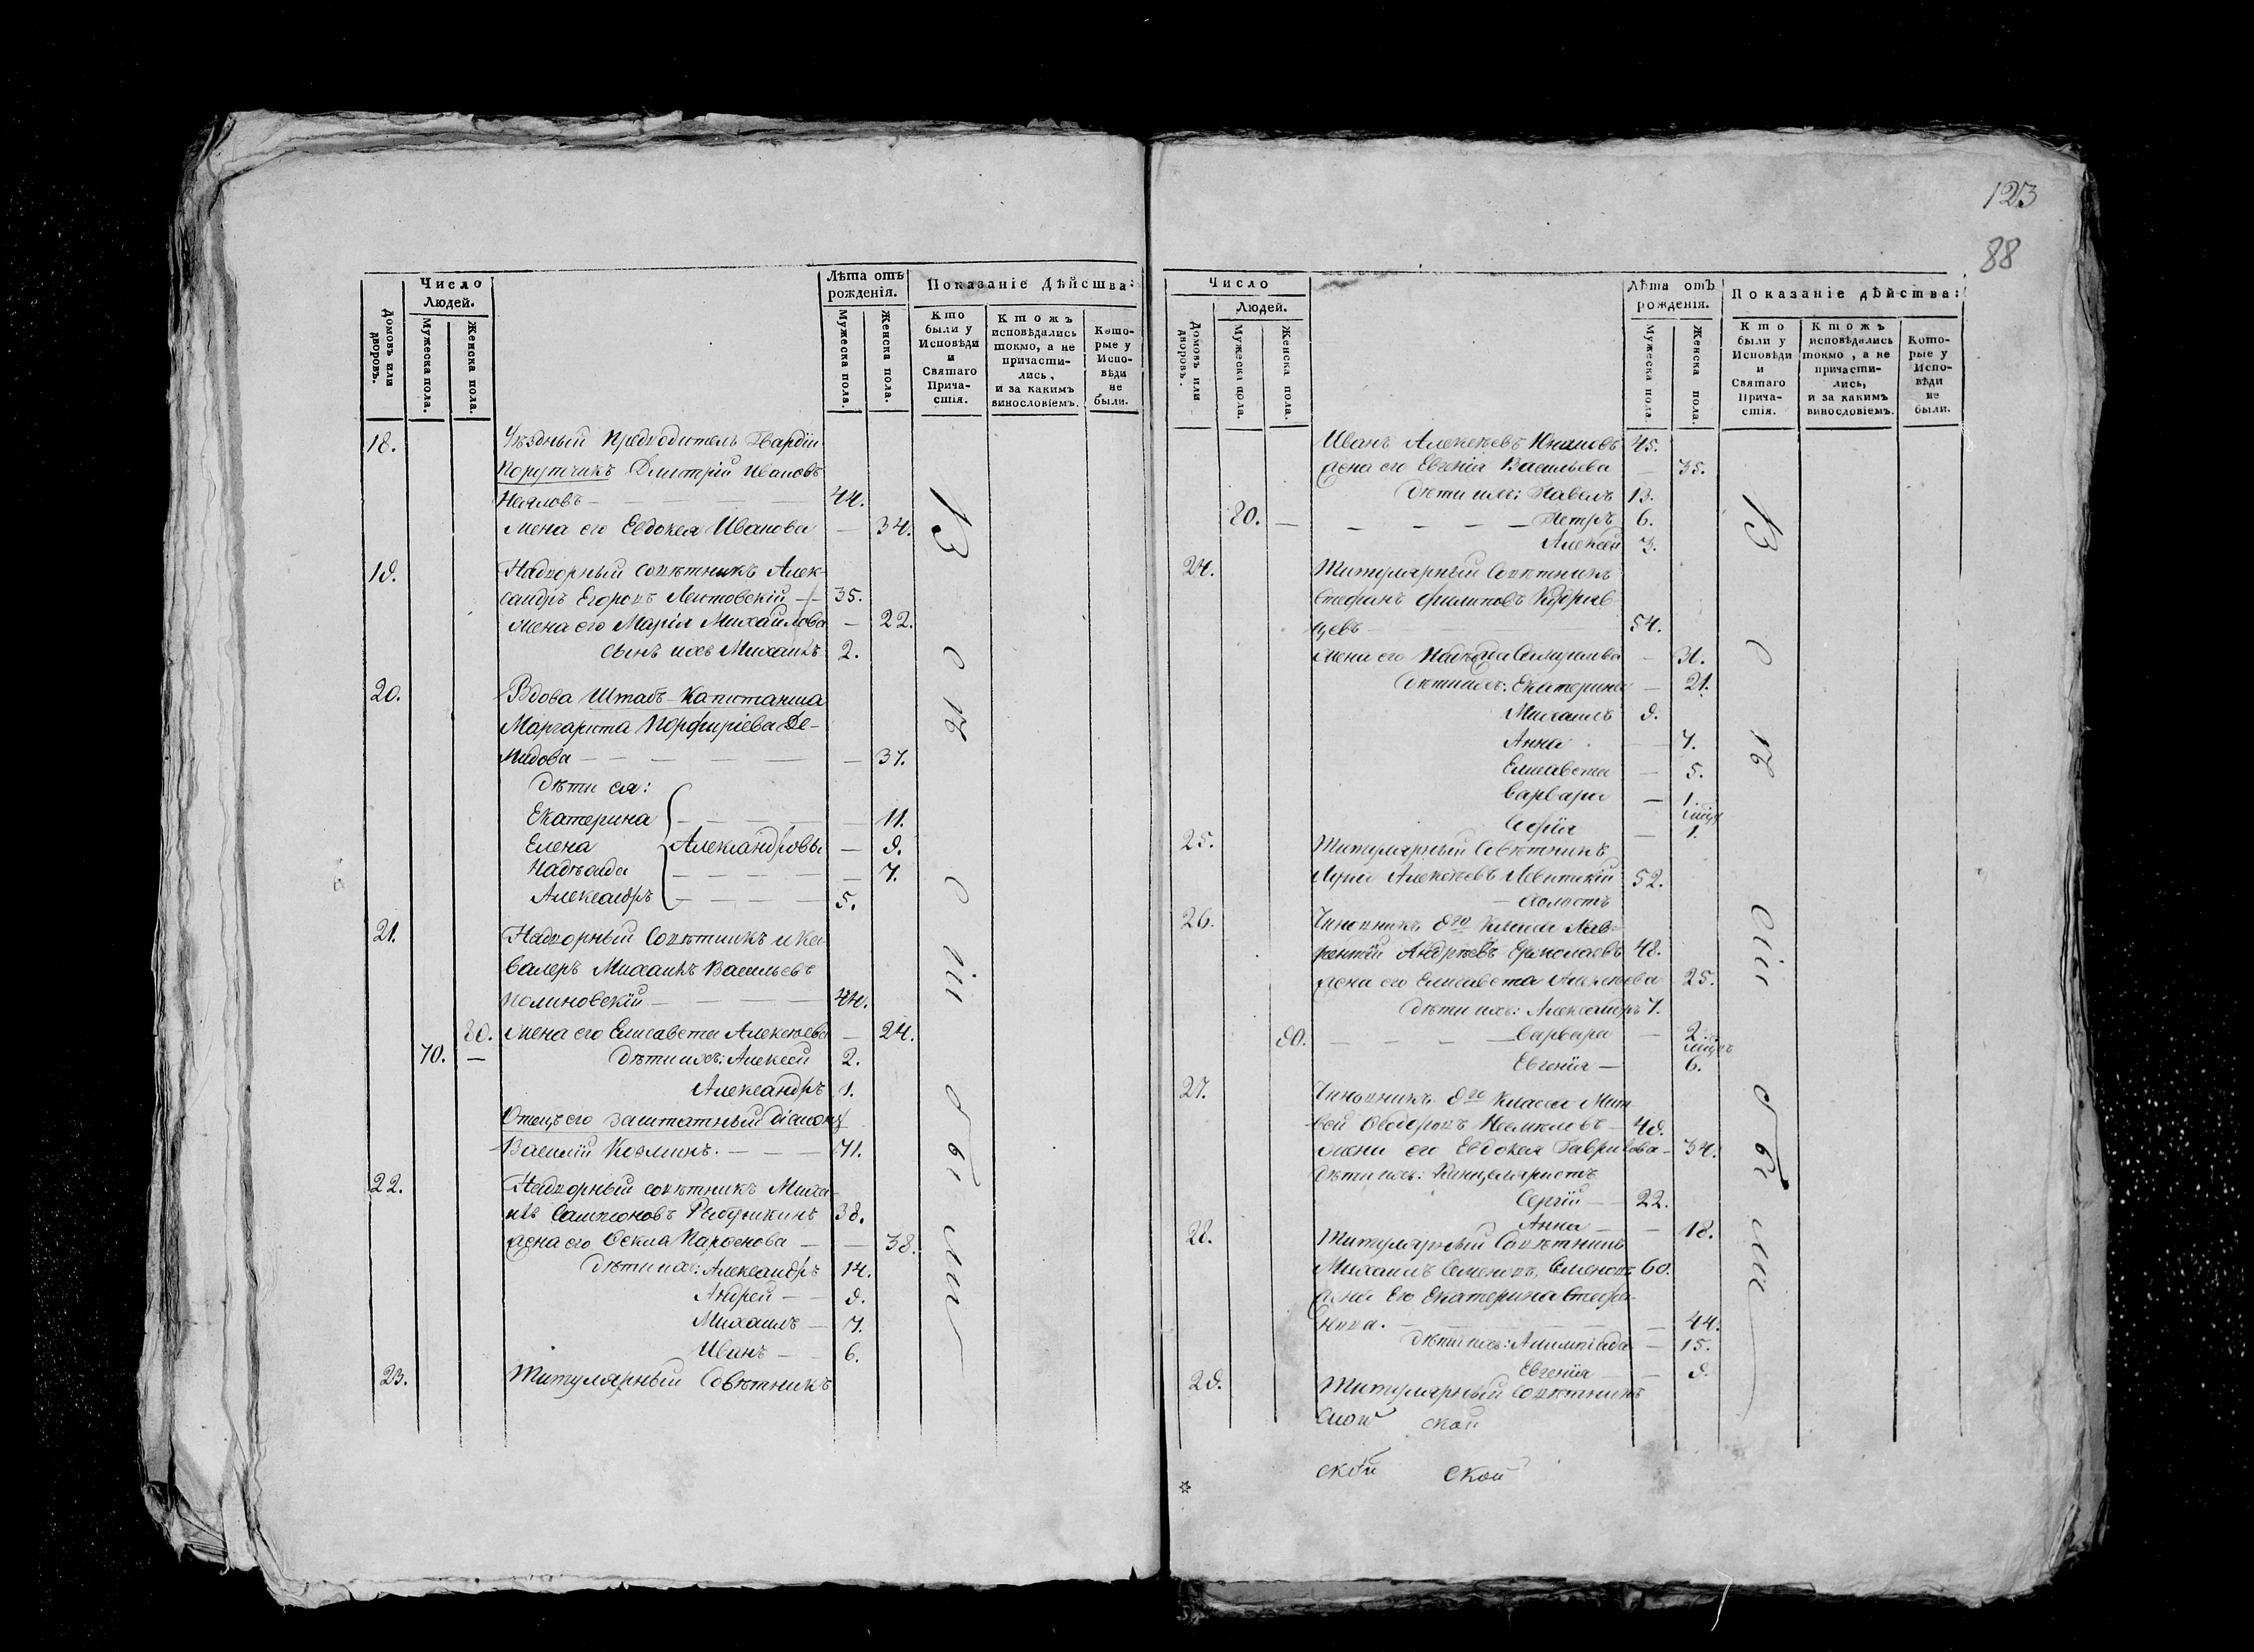 123
88
Число
Людей.
Домовъ или дворовъ.
Мужеска пола.
Женска пола.
Лѣта отъ рожденія.
Мужеска пола.
Женска пола.
Показаніе Дѣйства:
Кто были у Исповѣди и Святаго Причастія.
Ктожъ исповѣдались токмо, а не причастились, и за какимъ винословіемъ.
Которые у Исповѣди не были.
18. Уѣздный Предводитель Гвардіи
Порутчикъ Дмитрій Ивановъ
Неѣловъ — 44.
жена его Евдокея Иванова — 34.
19. Надворный совѣтникъ Алек-
сандръ Егоровъ — 35.
жена его Марія Михайлова — 22.
сынъ ихъ Михаилъ 2.
20. Вдова Штабъ-Капитанша
Маргарита Порфиріева Де-
мидова — 37.
дѣти ея:
Екатерина — 11.
Елена Александровы — 9.
Надежда — 7.
Александръ — 5.
21. Надворный Совѣтникъ и ка-
валеръ Михаилъ Васильевъ
Полиновскій — 44.
80. жена его Елисавета Алексѣева — 24.
70. — дѣти ихъ: Алексѣй 2.
Александръ 1.
Отецъ его заштатный діаконъ
Василій Козминъ. — 71.
22. Надворный совѣтникъ Миха-
илъ Сампсоновъ Рыбушкинъ 38.
жена его Ѳекла Парѳенова — 38.
дѣти ихъ: Александръ 14.
Андрей — 9.
Михаилъ — 7.
Иванъ — 6.
23. Титулярный Совѣтникъ
Всѣ сіи были
Число
Людей.
Домовъ или дворовъ.
Мужеска пола.
Женска пола.
Лѣта отъ рожденія.
Мужеска пола.
Женска пола.
Показаніе дѣйства:
Кто были у Исповѣди и Святаго Причастія.
Ктожъ исповѣдались токмо, а не причастились, и за какимъ винословіемъ.
Которые у Исповѣди не были.
Иванъ Алексѣевъ 45.
жена его Евгенія Васильева — 35.
дѣти ихъ: Павелъ 13.
80. — Петръ 6.
Алексѣй 3.
24. Титулярный Совѣтникъ
Стефанъ Филиповъ Кудряв-
цевъ 54.
жена его Надежда — 31.
дѣти ихъ: Екатерина — 21.
Михаилъ 9.
Анна — 7.
Елисавета — 5.
Варвара — 1.
Софія — 1.
25. Титулярный Совѣтникъ
Лука Алексѣевъ Левитскій 52.
— холостъ
26. Чиновникъ 8го класса Лав-
рентій Андреевъ Ермолаевъ 48.
жена его Елисавета Алексѣева 25.
дѣти ихъ: Александръ 7.
90. — Варвара — 2.
Евгенія — 6.
27. Чиновникъ 8го класса Мат-
вей Ѳедоровъ — 49.
жена его Евдокея Гаврилова — 34.
дѣти ихъ: Канцеляристъ
Сергій — 22.
Анна — 18.
28. Титулярный Совѣтникъ
Михаилъ Семеновъ, Семеновъ 60.
жена Его Екатерина Стефа-
нова. — 44.
дѣти ихъ: Алимпіада — 15.
Евгенія — 9.
29. Титулярный Совѣтникъ
ской
ской ской
Всѣ сіи были